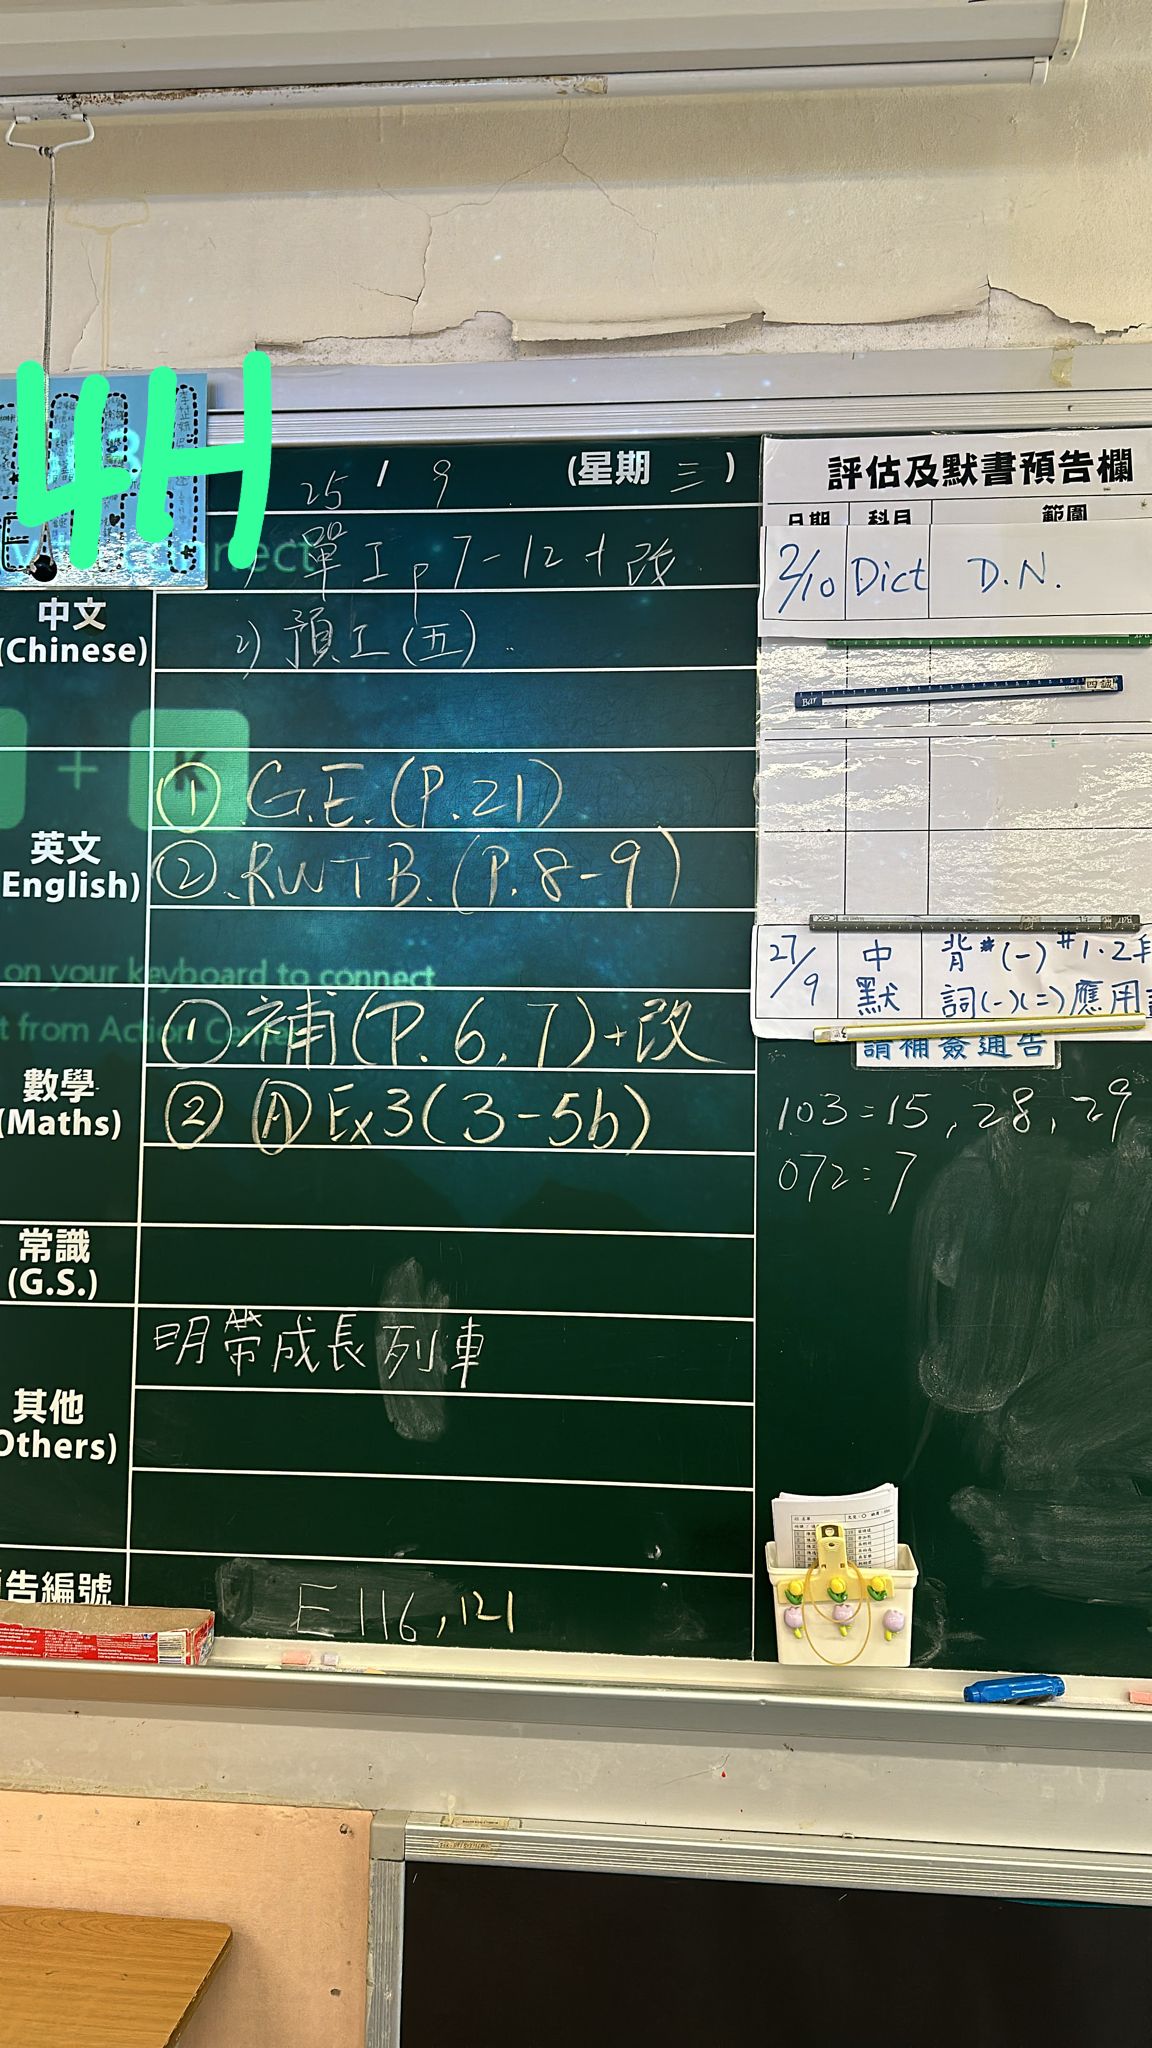 4H
25 / 9 (星期 三 )
1) 單工 p 7-12 + 改
中文
(Chinese)
2) 預工 (五)
+ K
英文
(English)
① G.E. (P. 21)
② RWTB. (P. 8-9)
on your keyboard to connect
t from Action Center
數學
(Maths)
① 補 (P. 6, 7) + 改
② Ⓐ Ex3 (3-5b)
常識
(G.S.)
其他
Others)
明帶成長列車
告編號
E 116, 121
評估及默書預告欄
日期 科目 範圍
2/10 Dict D.N.
27/9 中默 背 (一) #1.2
詞(一)(二)應用
請補簽通告
103=15, 28, 29
072=7